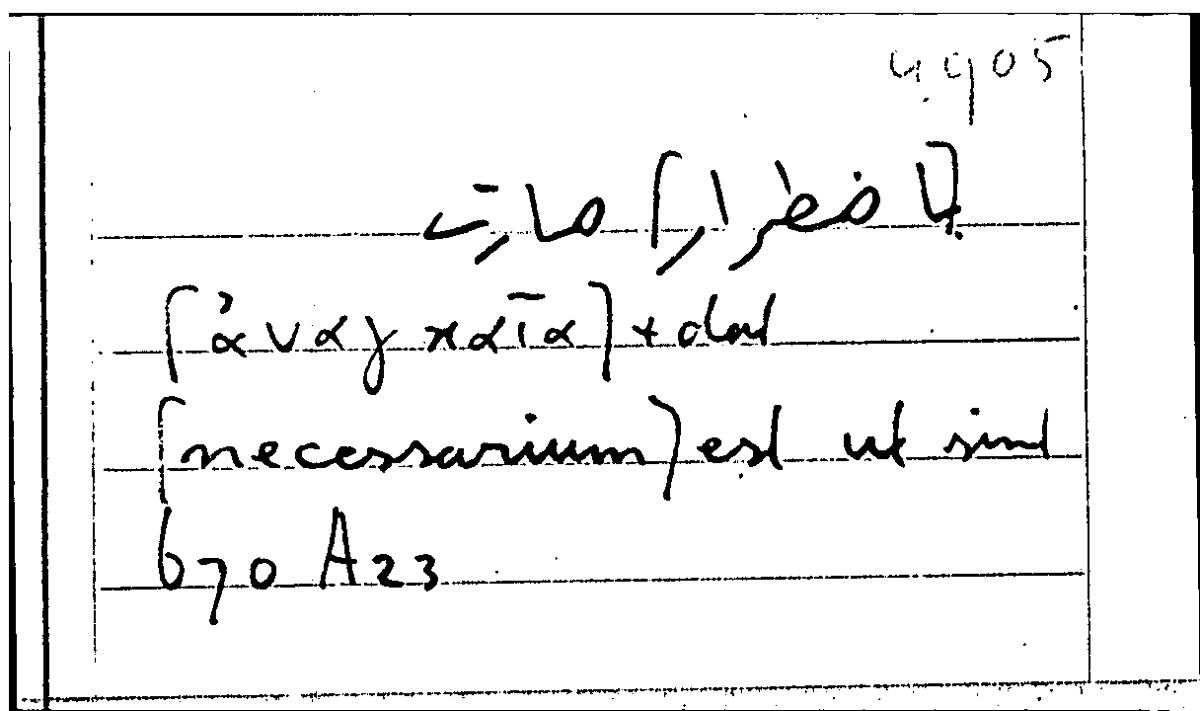 4905
[باضطرار] صارت
[ἀναγκαῖα] + dat
[necessarium] est ut sint
670 A23